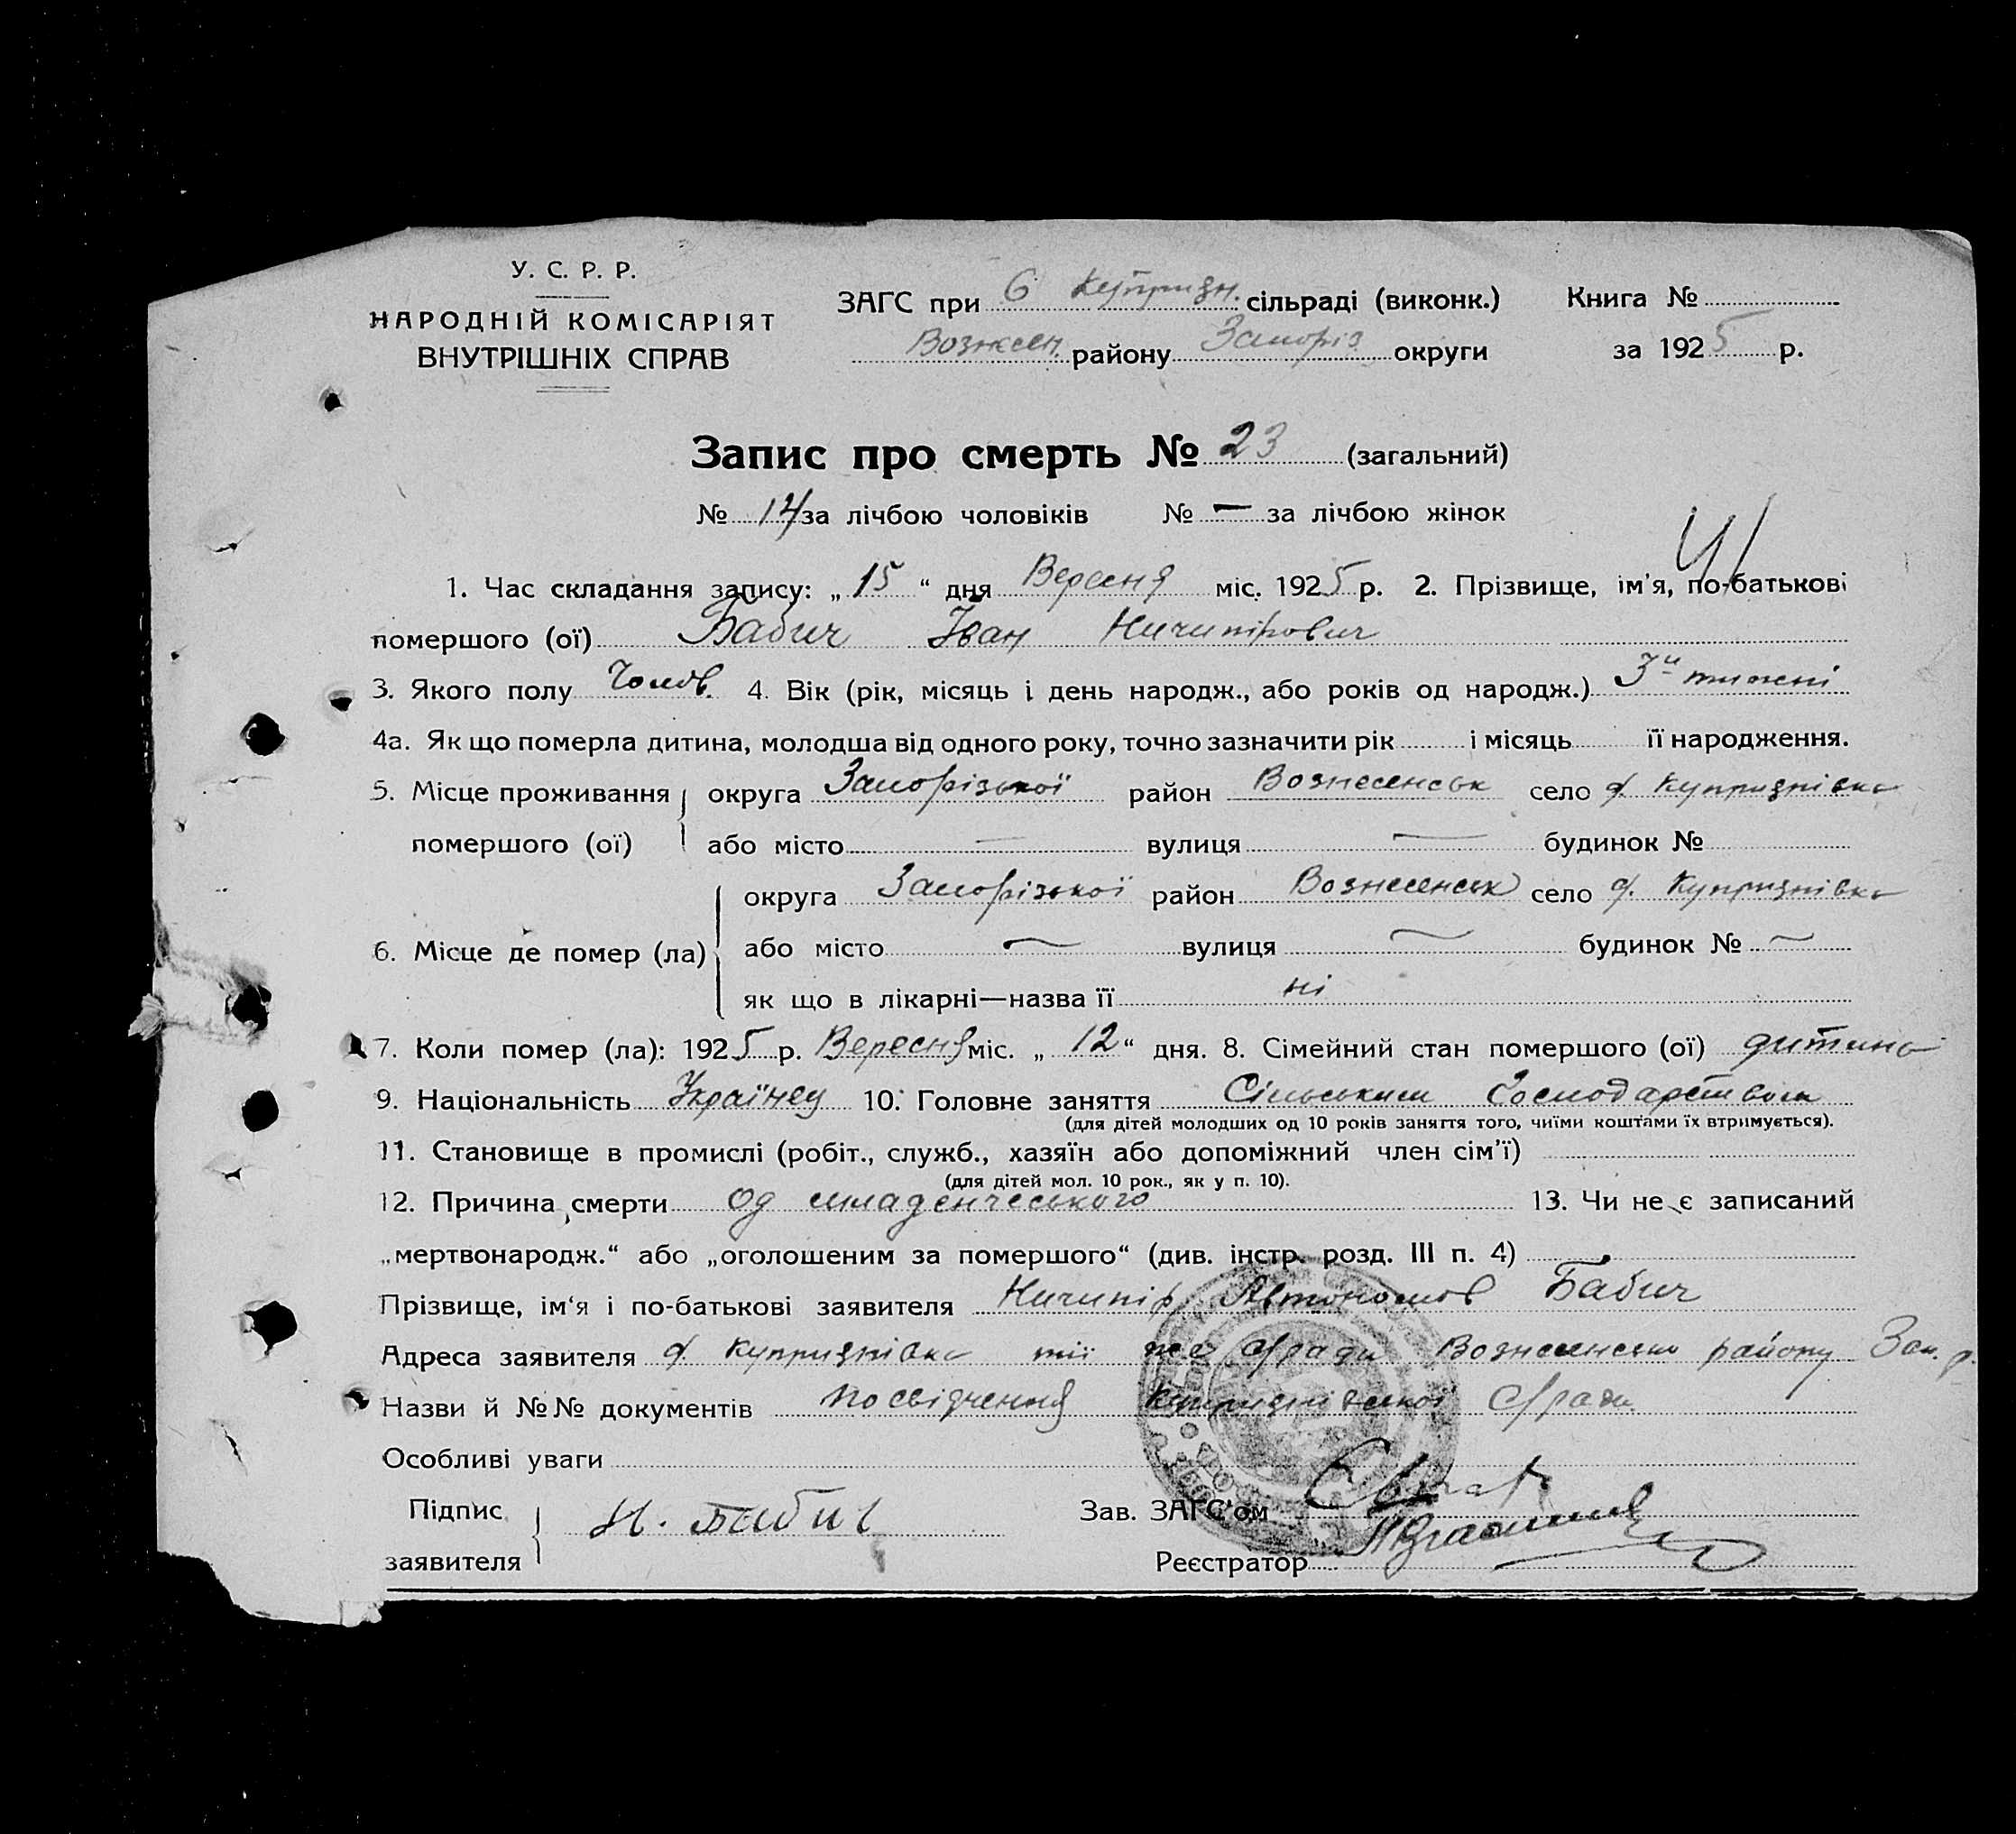 У. С. Р. Р.
НАРОДНІЙ КОМІСАРІЯТ
ВНУТРІШНІХ СПРАВ
ЗАГС при 6 Куприян. сільраді (виконк.) Книга №
Вознесен. району Запоріз округи за 1925 р.
Запис про смерть № 23 (загальний)
№ 14 за лічбою чоловіків № — за лічбою жінок
41
1. Час складання запису: „15“ дня Вересня міс. 1925 р. 2. Прізвище, ім'я, по-батькові
помершого (ої) Бабич Іван Ничипірович
3. Якого полу Чолов. 4. Вік (рік, місяць і день народж., або років од народж.) 3и тижні
4а. Як що померла дитина, молодша від одного року, точно зазначити рік і місяць її народження.
5. Місце проживання округа Запорізької район Вознесенськ село с. Купріянівка
помершого (ої) або місто — вулиця — будинок №
округа Запорізької район Вознесенськ село с. Купріянівка
6. Місце де помер (ла) або місто — вулиця — будинок № —
як що в лікарні—назва її ні
7. Коли помер (ла): 1925 р. Вересня міс. „12“ дня. 8. Сімейний стан помершого (ої) дитина
9. Національність Українец 10. Головне заняття Сільським Господарством
(для дітей молодших од 10 років заняття того, чиїми коштами їх втримується).
11. Становище в промислі (робіт., служб., хазяїн або допоміжний член сім'ї)
(для дітей мол. 10 рок., як у п. 10).
12. Причина смерти од младенческого 13. Чи не є записаний
„мертвонародж.“ або „оголошеним за помершого“ (див. інстр. розд. III п. 4)
Прізвище, ім'я і по-батькові заявителя Ничипір Автономов Бабич
Адреса заявителя с. Купріянівка тії же с/ради Вознесенськ району Зап.
Назви й №№ документів посвідчення Купріянівської с/ради
Особливі уваги
Підпис Н. Бабич Зав. ЗАГС'ом
заявителя Реєстратор